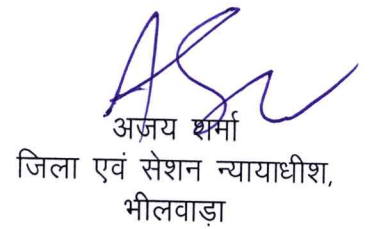 अजय शर्मा
जिला एवं सेशन न्यायाधीश,
भीलवाड़ा